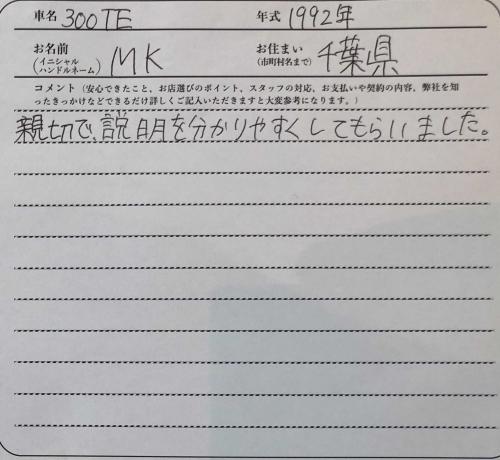 車名 300TE 年式 1992年
お名前 (イニシャル ハンドルネーム) MK お住まい (市町村名まで) 千葉県
コメント(安心できたこと、お店選びのポイント、スタッフの対応、お支払いや契約の内容、弊社を知
ったきっかけなどできるだけ詳しくご記入いただきますと大変参考になります。)
親切で、説明を分かりやすくしてもらいました。